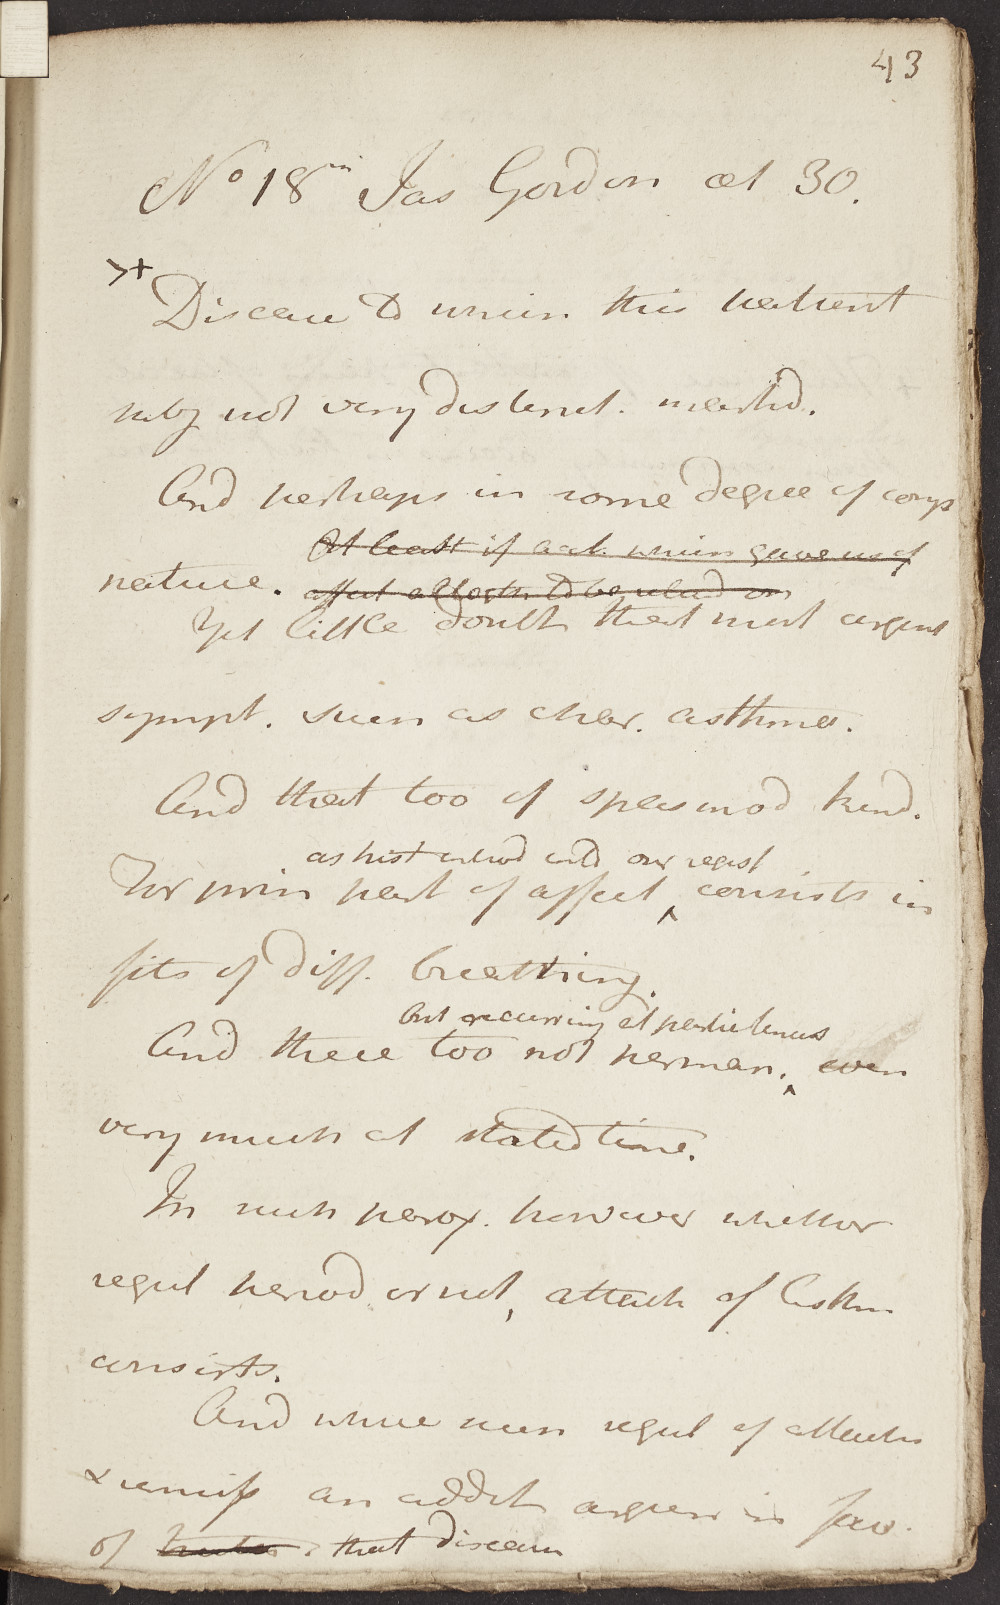 43
No 18 Jas Gordon æt 30.
Disease to which this patient
subj not very distinct. marked.
And perhaps in some degree of comp
At least if acct. which gave us of
nature. affect altogether to be relied on
Yet little doubt that most urgent
sympt. such as char. asthma.
And that too of spasmod kind.
as hist introd into our regist
For prin part of affect consists in
fits of diff. breathing.
but recurring at particular
And these too not perman. even
very much at stated time.
In such parox. however whether
regul period or not, attack of Asthm
consists.
And where such regul of attacks
& remiss an addit argum in fav.
of that disease